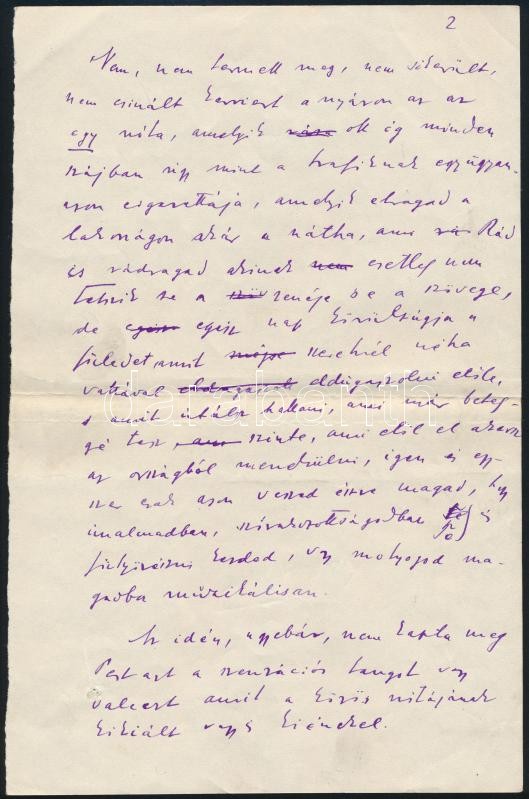 2
Nem, nem termett meg, nem sikerült,
nem csinált karriert a nyáron az az
egy nóta, amelyik ott ég minden
szájban úgy mint a trafiknak egyugyan-
azon cigarettája, amelyik elragad a
lakosságon akár a nátha, ami Rád
és rádragad akinek nem esetleg nem
tetszik se a zenéje se a szövege,
de egész egész nap körülzúgja a
füledet, amit szeretnél néha
vattával eldugaszolni előle,
s amit utálsz hallani, ami már beteg-
gé tesz szinte, ami elől el akarsz
az országból menekülni, igen és egy-
szer csak azon veszed észre magad, hogy
unalmadban, szórakozottságodban és
fütyörészni kezded, vagy motyogod ma-
gadba muzikálisan.
Az idén, ugyebár, nem kapta meg
Pest azt a szenzációs tangót vagy
valcert amit a közös nótájának
kikiált vagy kiénekel.